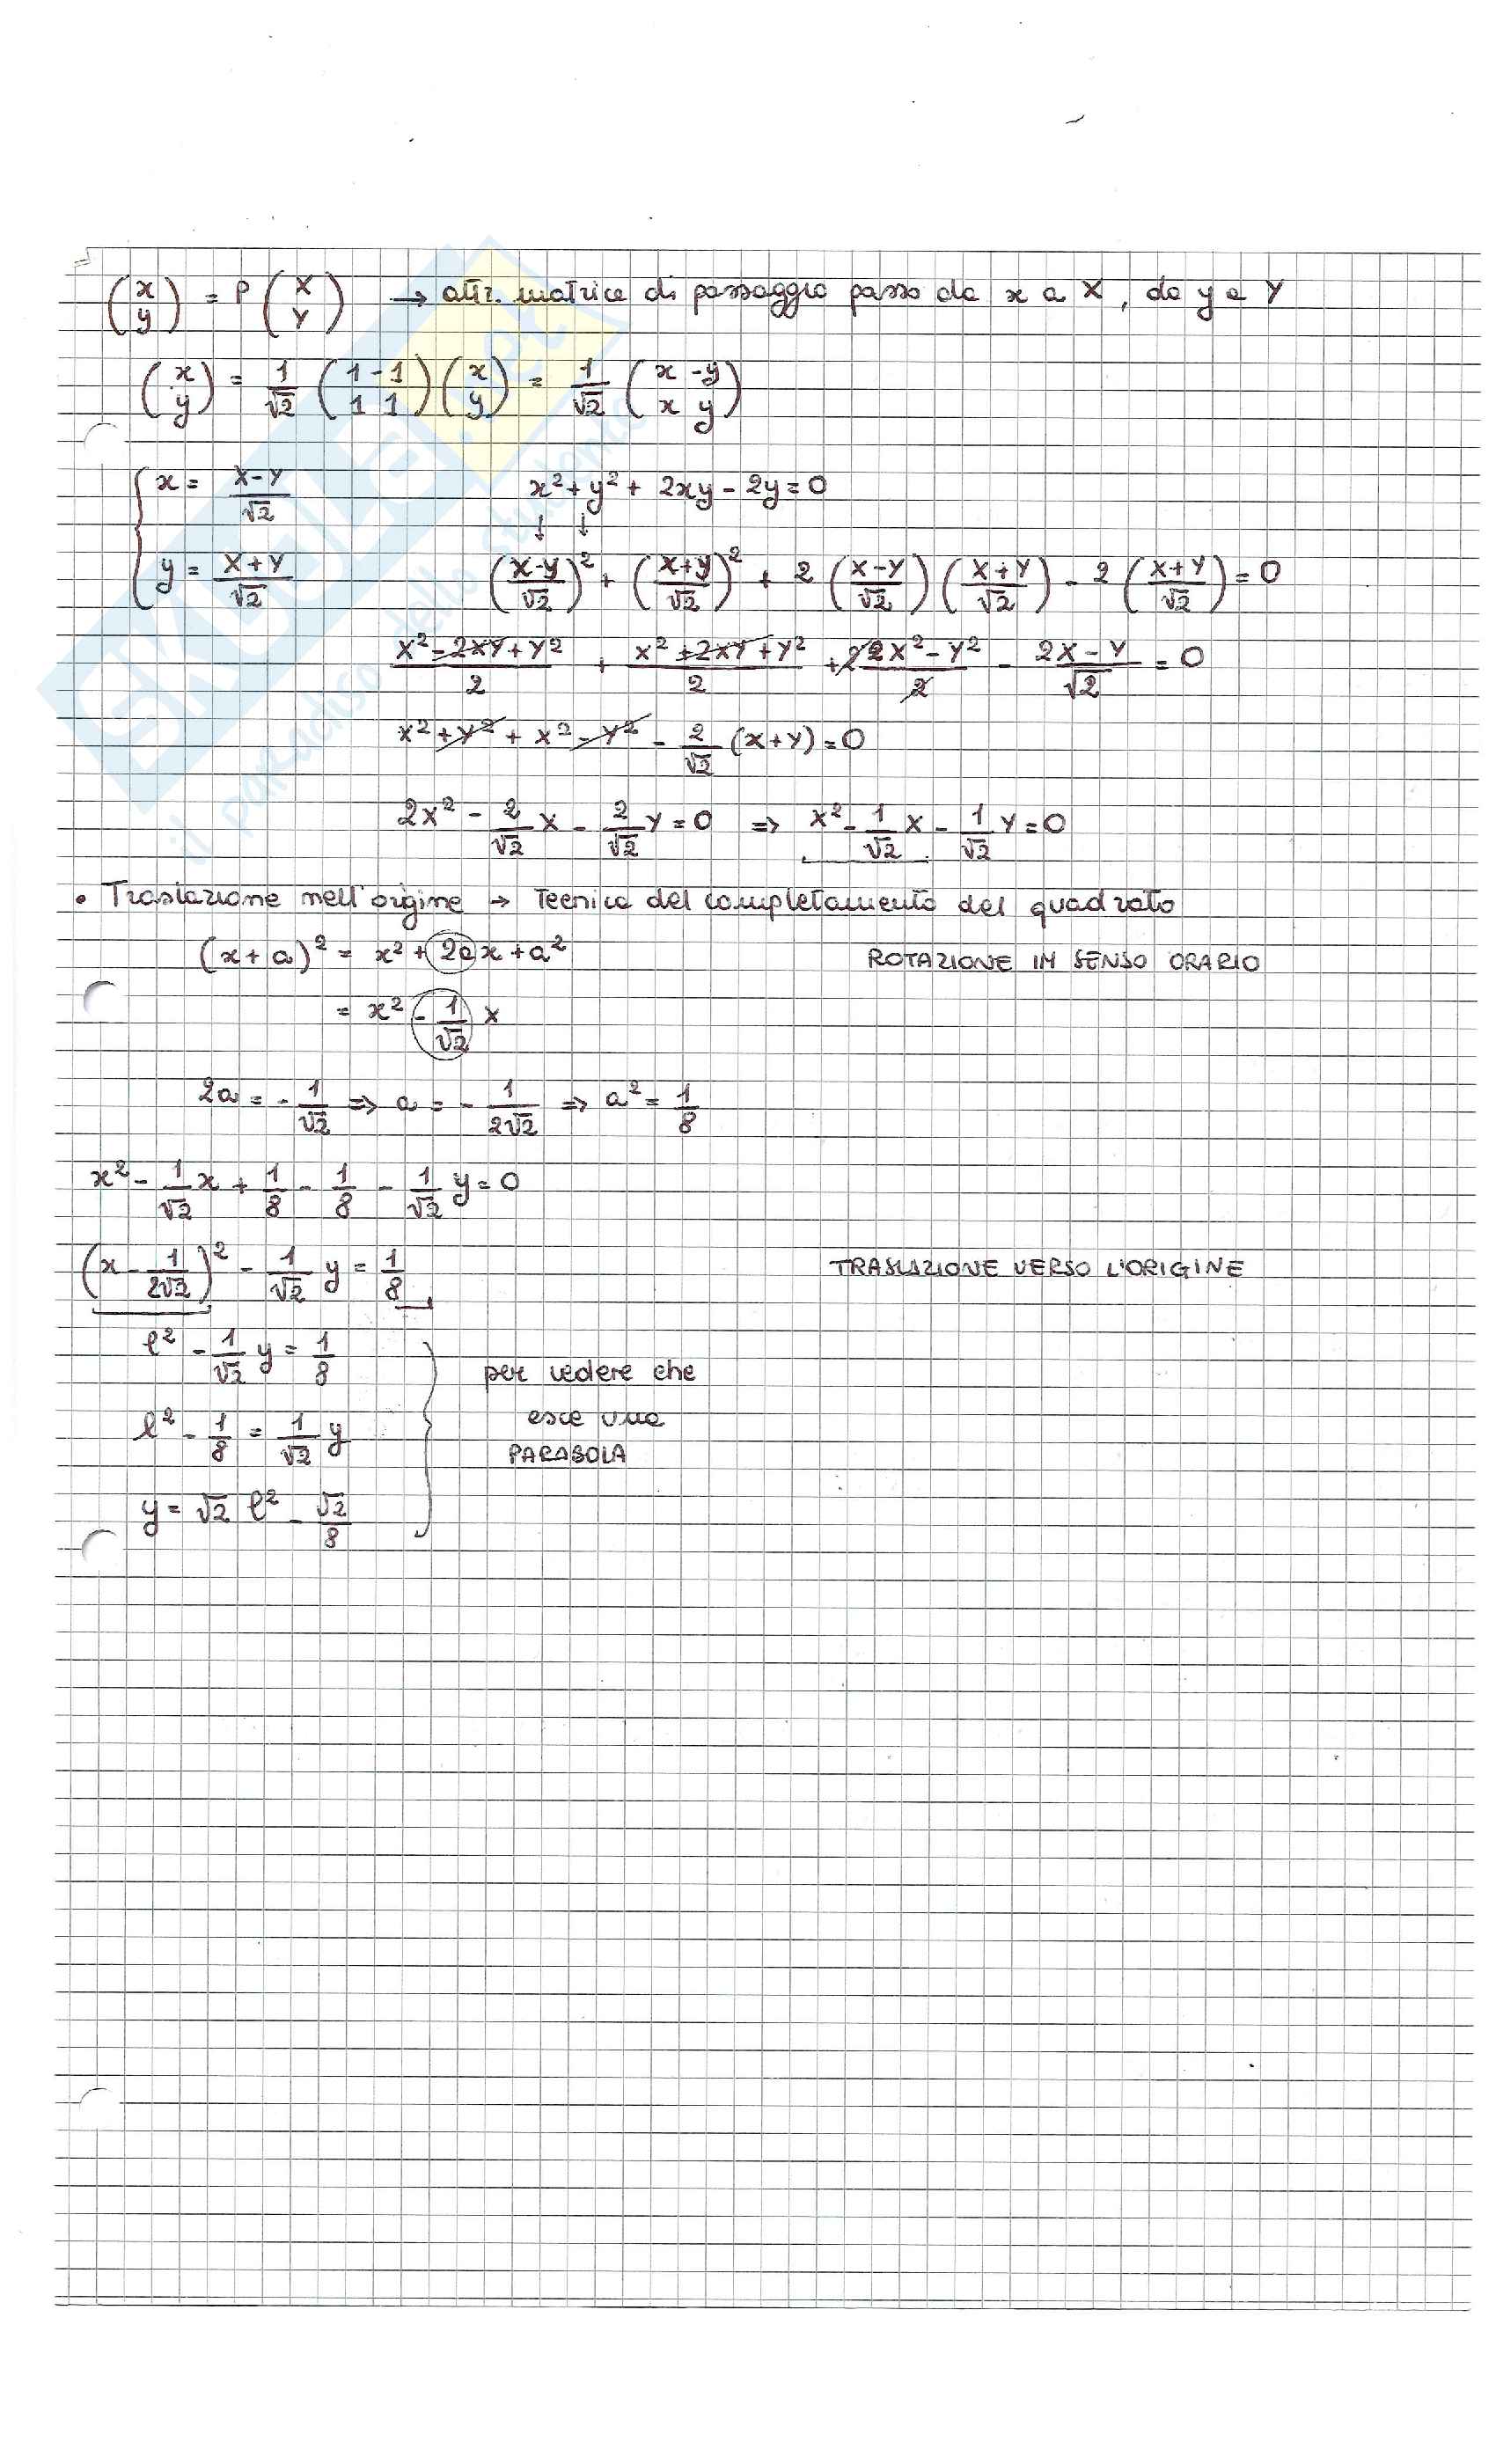 (x y) = P (X Y) → attr. matrice di passaggio passo da x a X, da y a Y
(x y) = 1/√2 (1 -1 1 1) (x y) = 1/√2 (x -y x y)
{ x = X-Y/√2 x² + y² + 2xy - 2y = 0
↓ ↓
y = X+Y/√2 (X-Y/√2)² + (X+Y/√2)² + 2 (X-Y/√2) (X+Y/√2) - 2 (X+Y/√2) = 0
X² - 2XY + Y²/2 + X² + 2XY + Y²/2 + 2 X² - Y²/2 - 2X - Y/√2 = 0
X² + Y² + X² - Y² - 2/√2 (X+Y) = 0
2X² - 2/√2 X - 2/√2 Y = 0 ⇒ X² - 1/√2 X - 1/√2 Y = 0
• Traslazione nell'origine → Tecnica del completamento del quadrato
(x + a)² = x² + 2a x + a² ROTAZIONE IN SENSO ORARIO
= x² - 1/√2 x
2a = - 1/√2 ⇒ a = - 1/2√2 ⇒ a² = 1/8
x² - 1/√2 x + 1/8 - 1/8 - 1/√2 y = 0
(x - 1/2√2)² - 1/√2 y = 1/8 TRASLAZIONE VERSO L'ORIGINE
ℓ² - 1/√2 y = 1/8 per vedere che
ℓ² - 1/8 = 1/√2 y esce una
PARABOLA
y = √2 ℓ² - √2/8
SKUOLA.net
il paradiso dello studente